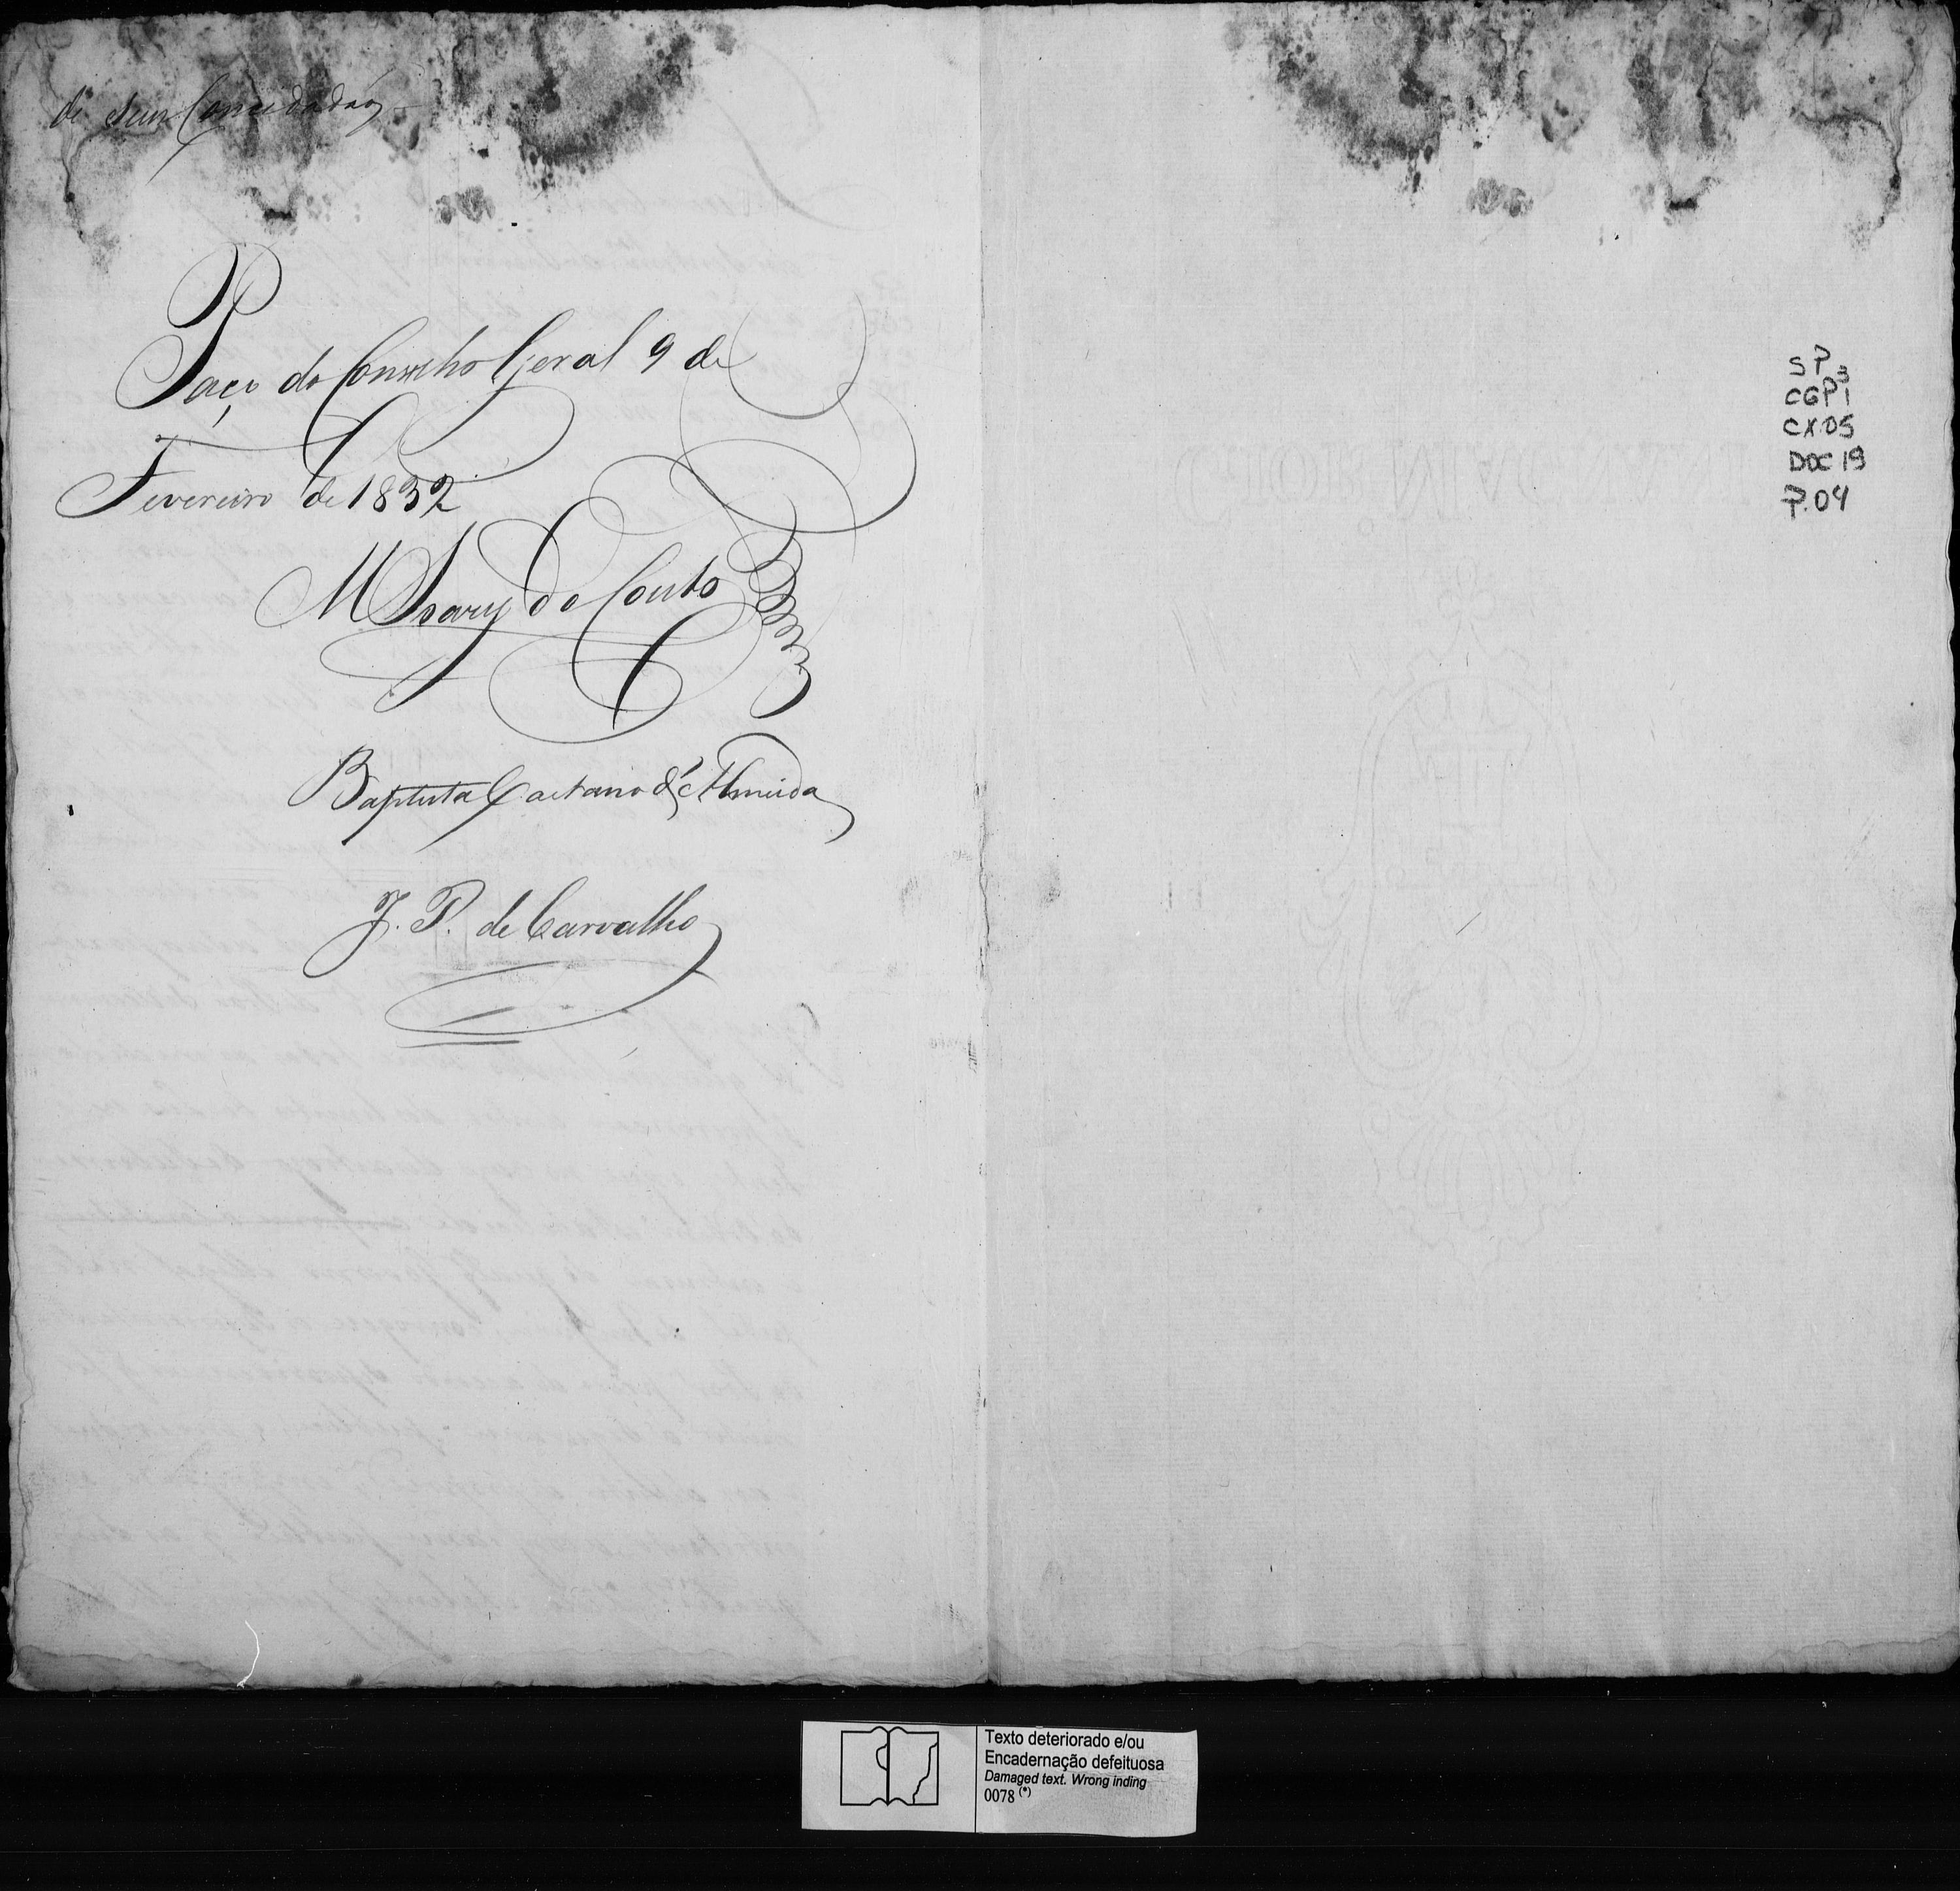 de seus Concidadãos
Paço do Conselho Geral 9 de
Fevereiro de 1832
M Soares do Couto
Baptista Caetano d'Almeida
J. P. de Carvalho
SP
CGP1 3
CX.05
DOC 19
P.04
Texto deteriorado e/ou
Encadernação defeituosa
Damaged text. Wrong inding
0078 (*)